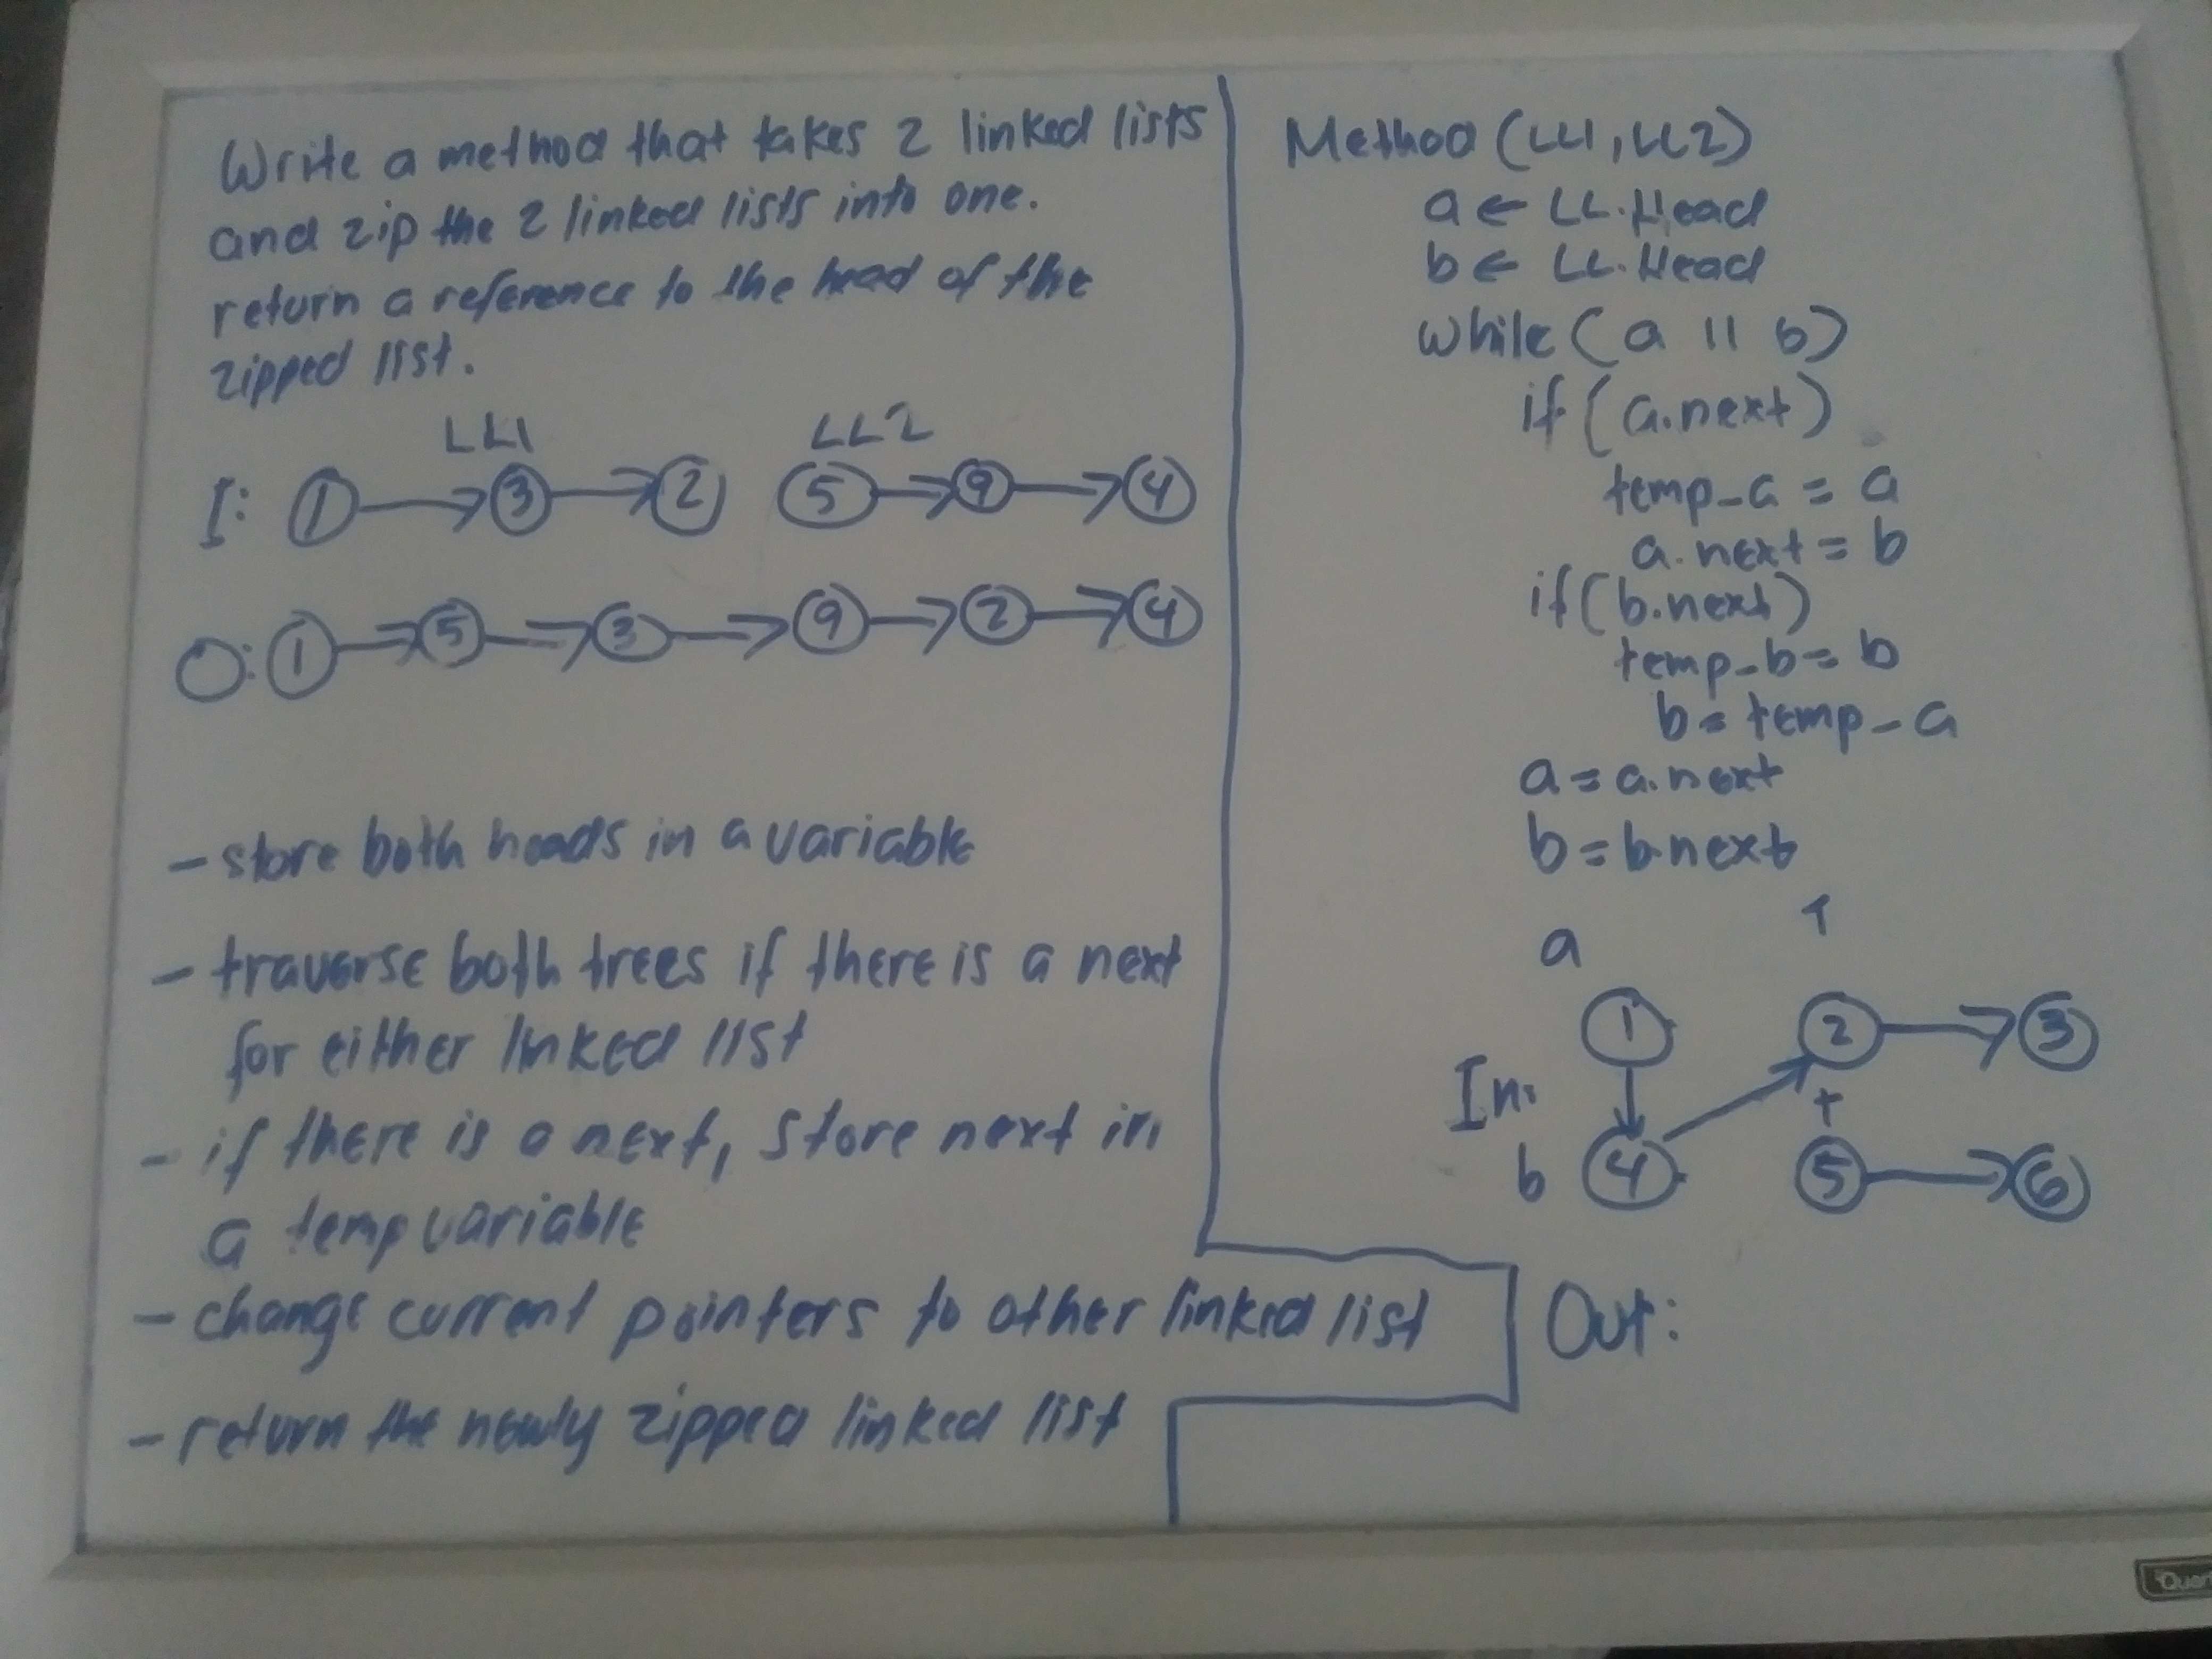 Write a method that takes 2 linked lists
and zip the 2 linked lists into one.
return a reference to the head of the
zipped list.
LL1 LL2
I: 1 3 2 5 9 4
O: 1 5 3 9 2 4
- store both heads in a variable
- traverse both trees if there is a next
for either linked list
- if there is a next, store next in
a temp variable
- change current pointers to other linked list
- return the newly zipped linked list
Method (LL1, LL2)
a ← LL.Head
b ← LL.Head
while (a || b)
if (a.next)
temp_a = a
a.next = b
if (b.next)
temp_b = b
b = temp_a
a = a.next
b = b.next
a T
1 2 3
In: t
b 4 5 6
Out: